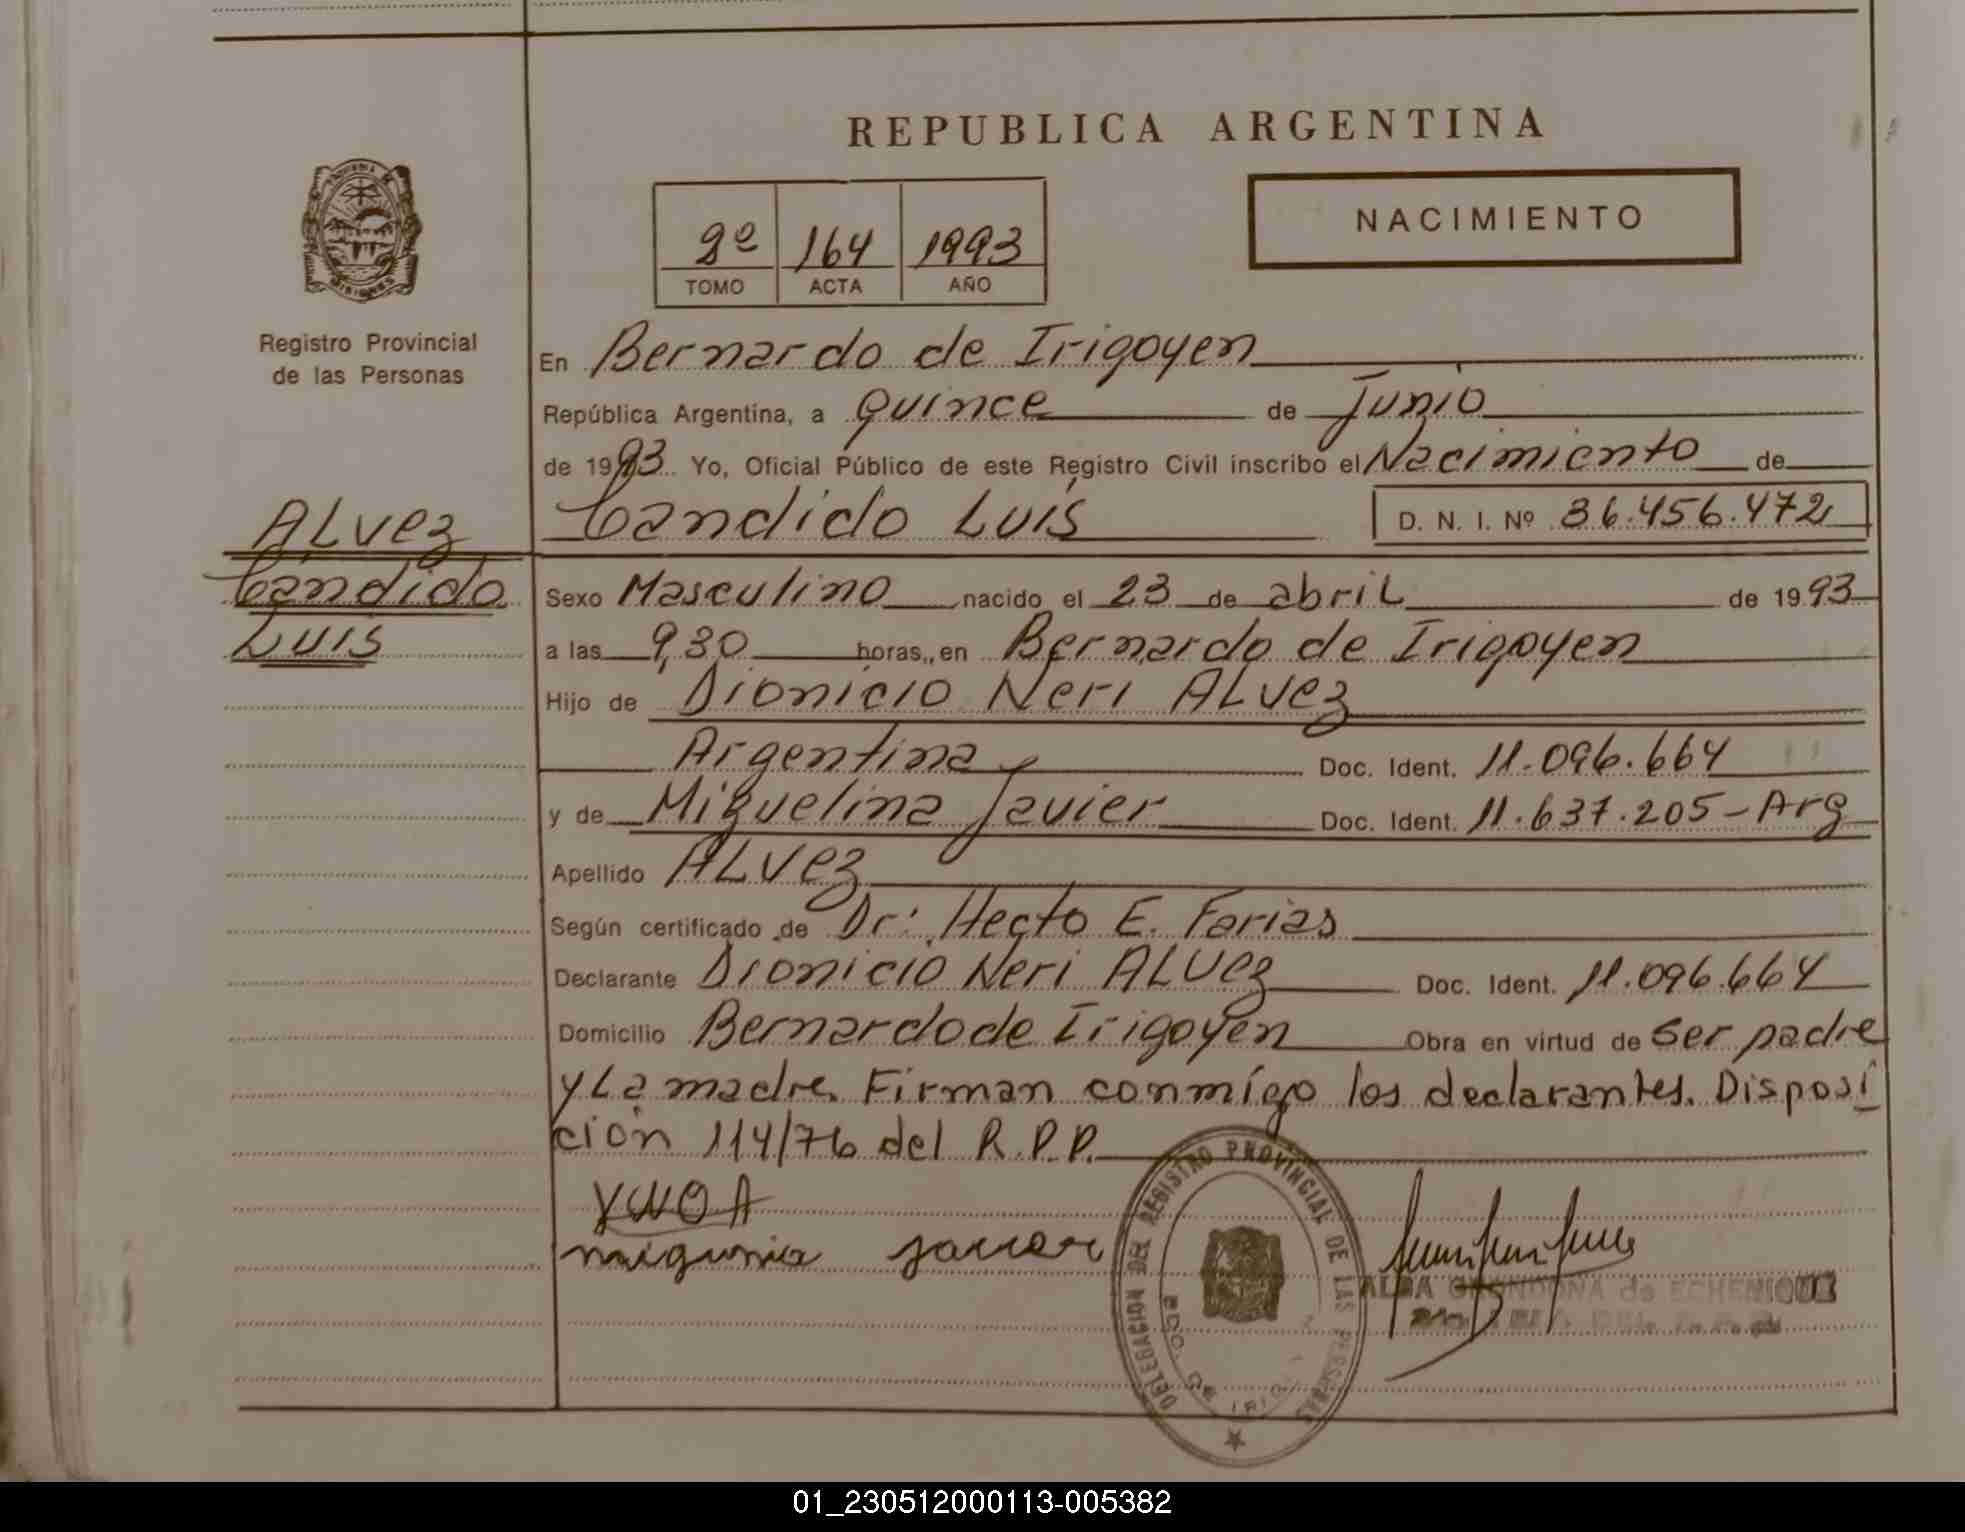 REPUBLICA ARGENTINA
NACIMIENTO
2º 164 1993
TOMO ACTA AÑO
MISIONES
Registro Provincial
de las Personas
En Bernardo de Irigoyen
República Argentina, a quince de Junio
de 1993 Yo, Oficial Público de este Registro Civil inscribo el Nacimiento de
ALVez
Candido
Luis
Candido Luis D. N. I. Nº 36.456.472
Sexo Masculino nacido el 23 de abril de 1993
a las 9,30 horas, en Bernardo de Irigoyen
Hijo de Dionicio Neri ALvez
Argentina Doc. Ident. 11.096.664
y de Miguelina Javier Doc. Ident. 11.637.205-Arg
Apellido ALvez
Según certificado de Dr: Hecto E. Farias
Declarante Dionicio Neri ALvez Doc. Ident. 11.096.664
Domicilio Bernardo de Irigoyen Obra en virtud de ser padre
y La madre. Firman conmígo los declarantes. Disposi
ción 114/76 del R.P.P.
DELEGACION DEL REGISTRO PROVINCIAL DE LAS PERSONAS
BDO. DE
ALBA GRONDONA de ECHENIQUE
01_230512000113-005382